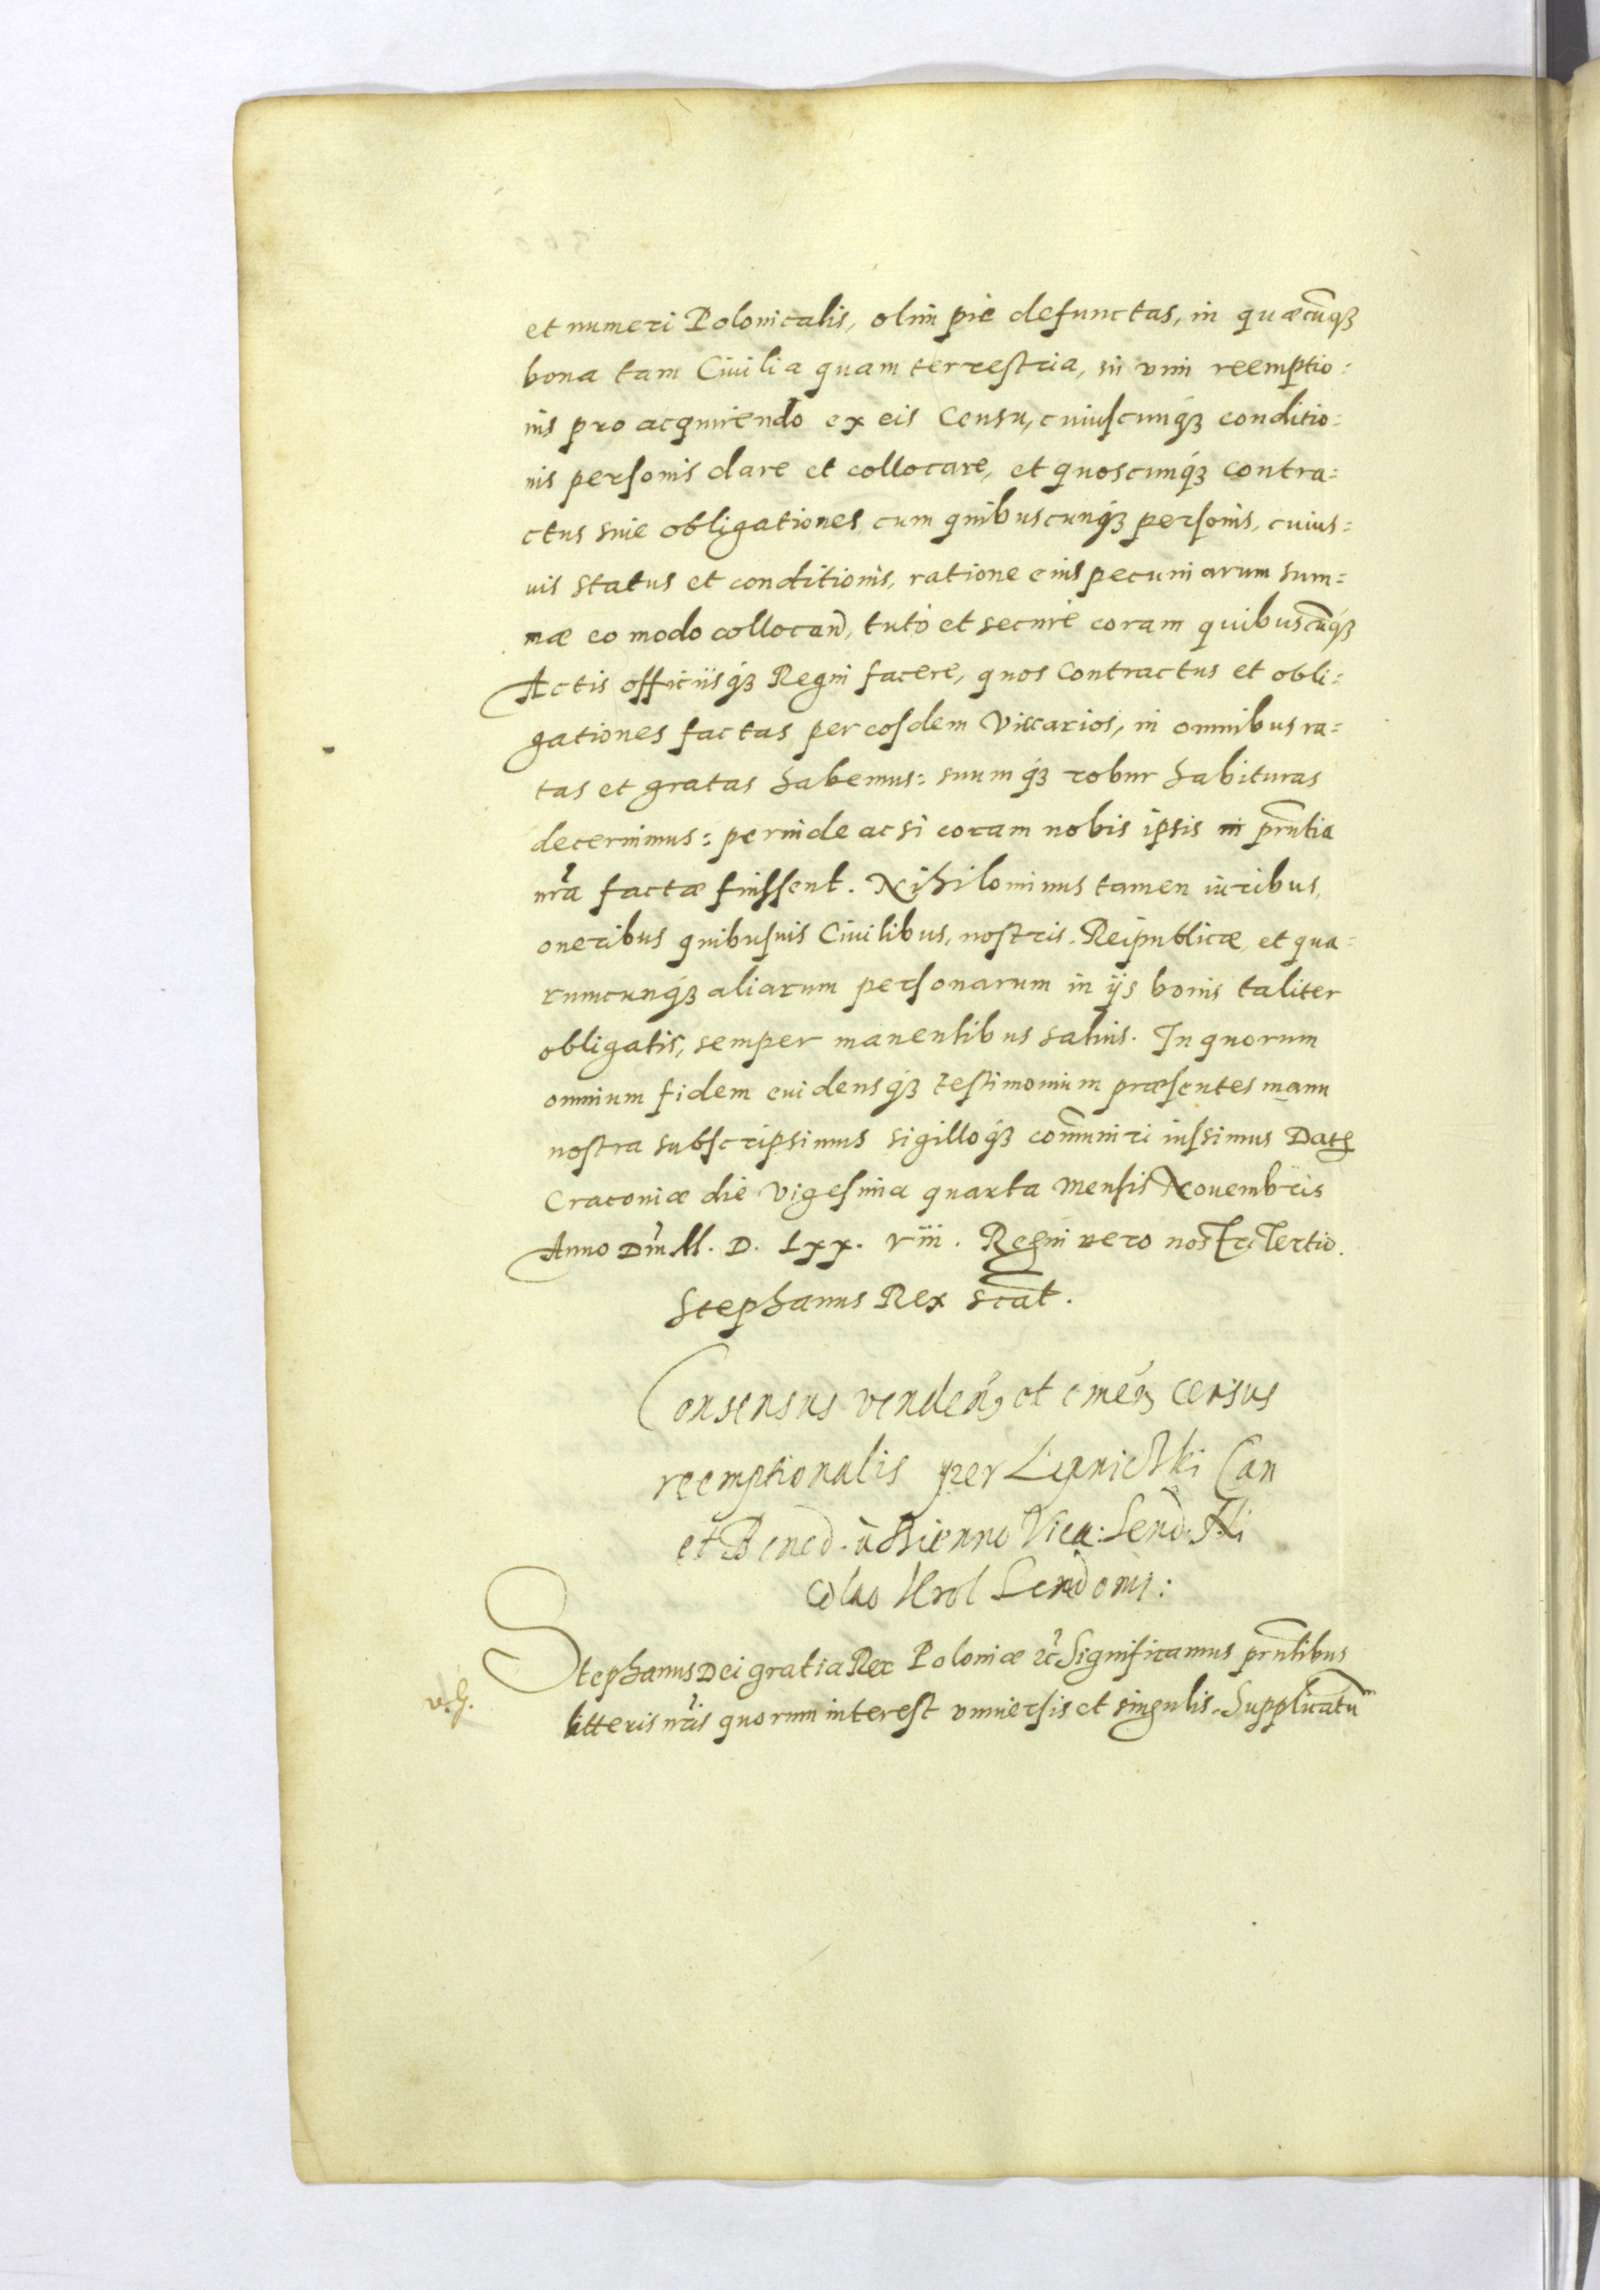 et numeri Polonicalis, olim pie defunctas, in quæcunq3
bona tam Ciuilia quam terrestria, in vim reemptio:
nis pro acquirendo ex eis Censu, cuiuscunq3 conditio:
nis personis dare et collocare, et quoscunq3 contra:
ctus siue obligationes cum quibuscunq3 personis, cuius:
uis status et conditionis, ratione eius pecuniarum sum=
mæ eo modo collocand, tutò et securè coram quibuscunq3
Actis officiisq3 Regni facere, quos Contractus et obli:
gationes factas per eosdem Viccarios, in omnibus ra=
tas et gratas habemus: suumq3 robur habituras
decernimus: perinde ac si coram nobis ipsis in prntia
nra factæ fuissent. Nihilominus tamen iuribus,
oneribus quibusuis Ciuilibus, nostris, Reipublicæ, et qua=
rumcunq3 aliarum personarum in ijs bonis taliter
obligatis, semper manentibus saluis. In quorum
omnium fidem euidensq3 testimonium præsentes manu
nostra subscripsimus sigilloq3 communiri iussimus Dat
Cracouiæ die Vigesima quarta Mensis Nouembris
Anno Dni M. D. Lxx. viii. Regni vero nostri Tertio.
Stephanus Rex scat.
Consensus venden, et emen, census
reemptionalis per Lipnic ski Can
et Bened. à Bienno Vica: Send. Ni
colao Krol Sendomi:
Stephanus Dei gratia Rex Poloniæ etc Significamus prntibus
litteris nris quorum interest vniuersis et singulis. Supplicatum